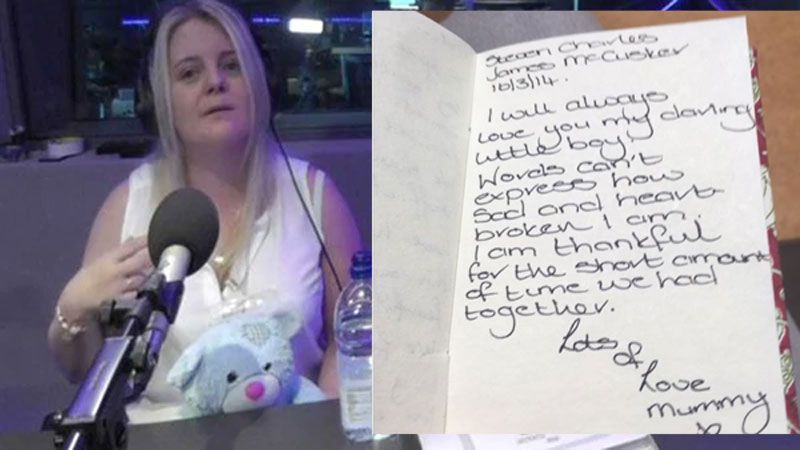 Steven Charles
James McCusker
10/3/14.
I will always
love you my darling
little boy.
Words can't
express how
sad and heart
broken I am.
I am thankful
for the short amount
of time we had
together.
Lots
of
Love
Mummy